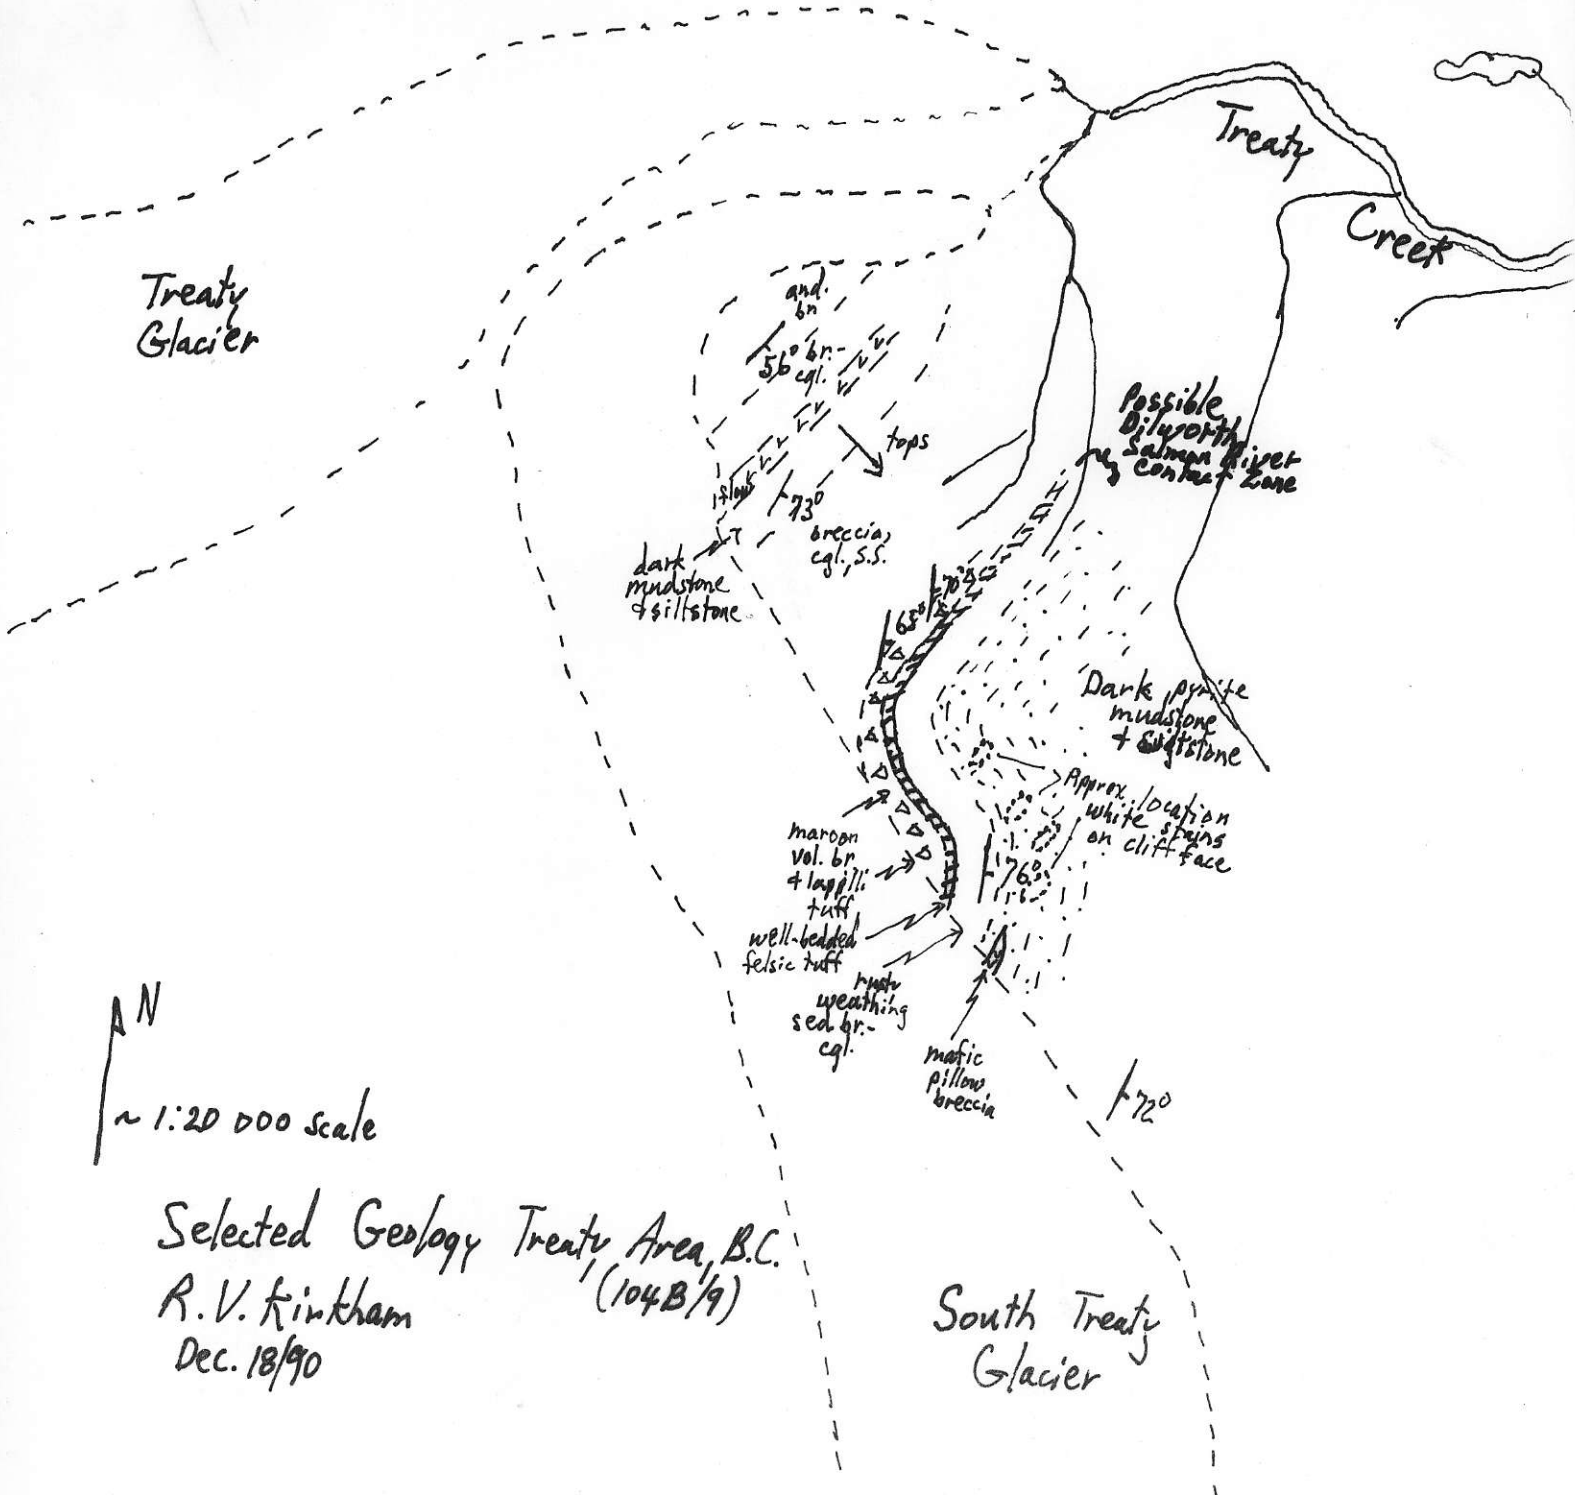 Treaty
Creek
Treaty
Glacier
and.
bn
56° br.-
cgl.
tops
flows
73°
breccia,
cgl., s.s.
dark
mudstone
& siltstone
Possible
Dilworth,
Salmon River
Contact Zone
70°
65°
Dark, pyrite
mudstone
& siltstone
Approx. location
white stains
on cliff face
maroon
vol. br.
& lappilli
tuff
76°
well-bedded
felsic tuff
rusty
weathing
sed. br.-
cgl.
mafic
pillow
breccia
72°
N
~ 1:20 000 scale
Selected Geology Treaty Area, B.C.
(104B/9)
R.V. Kirkham
Dec. 18/90
South Treaty
Glacier